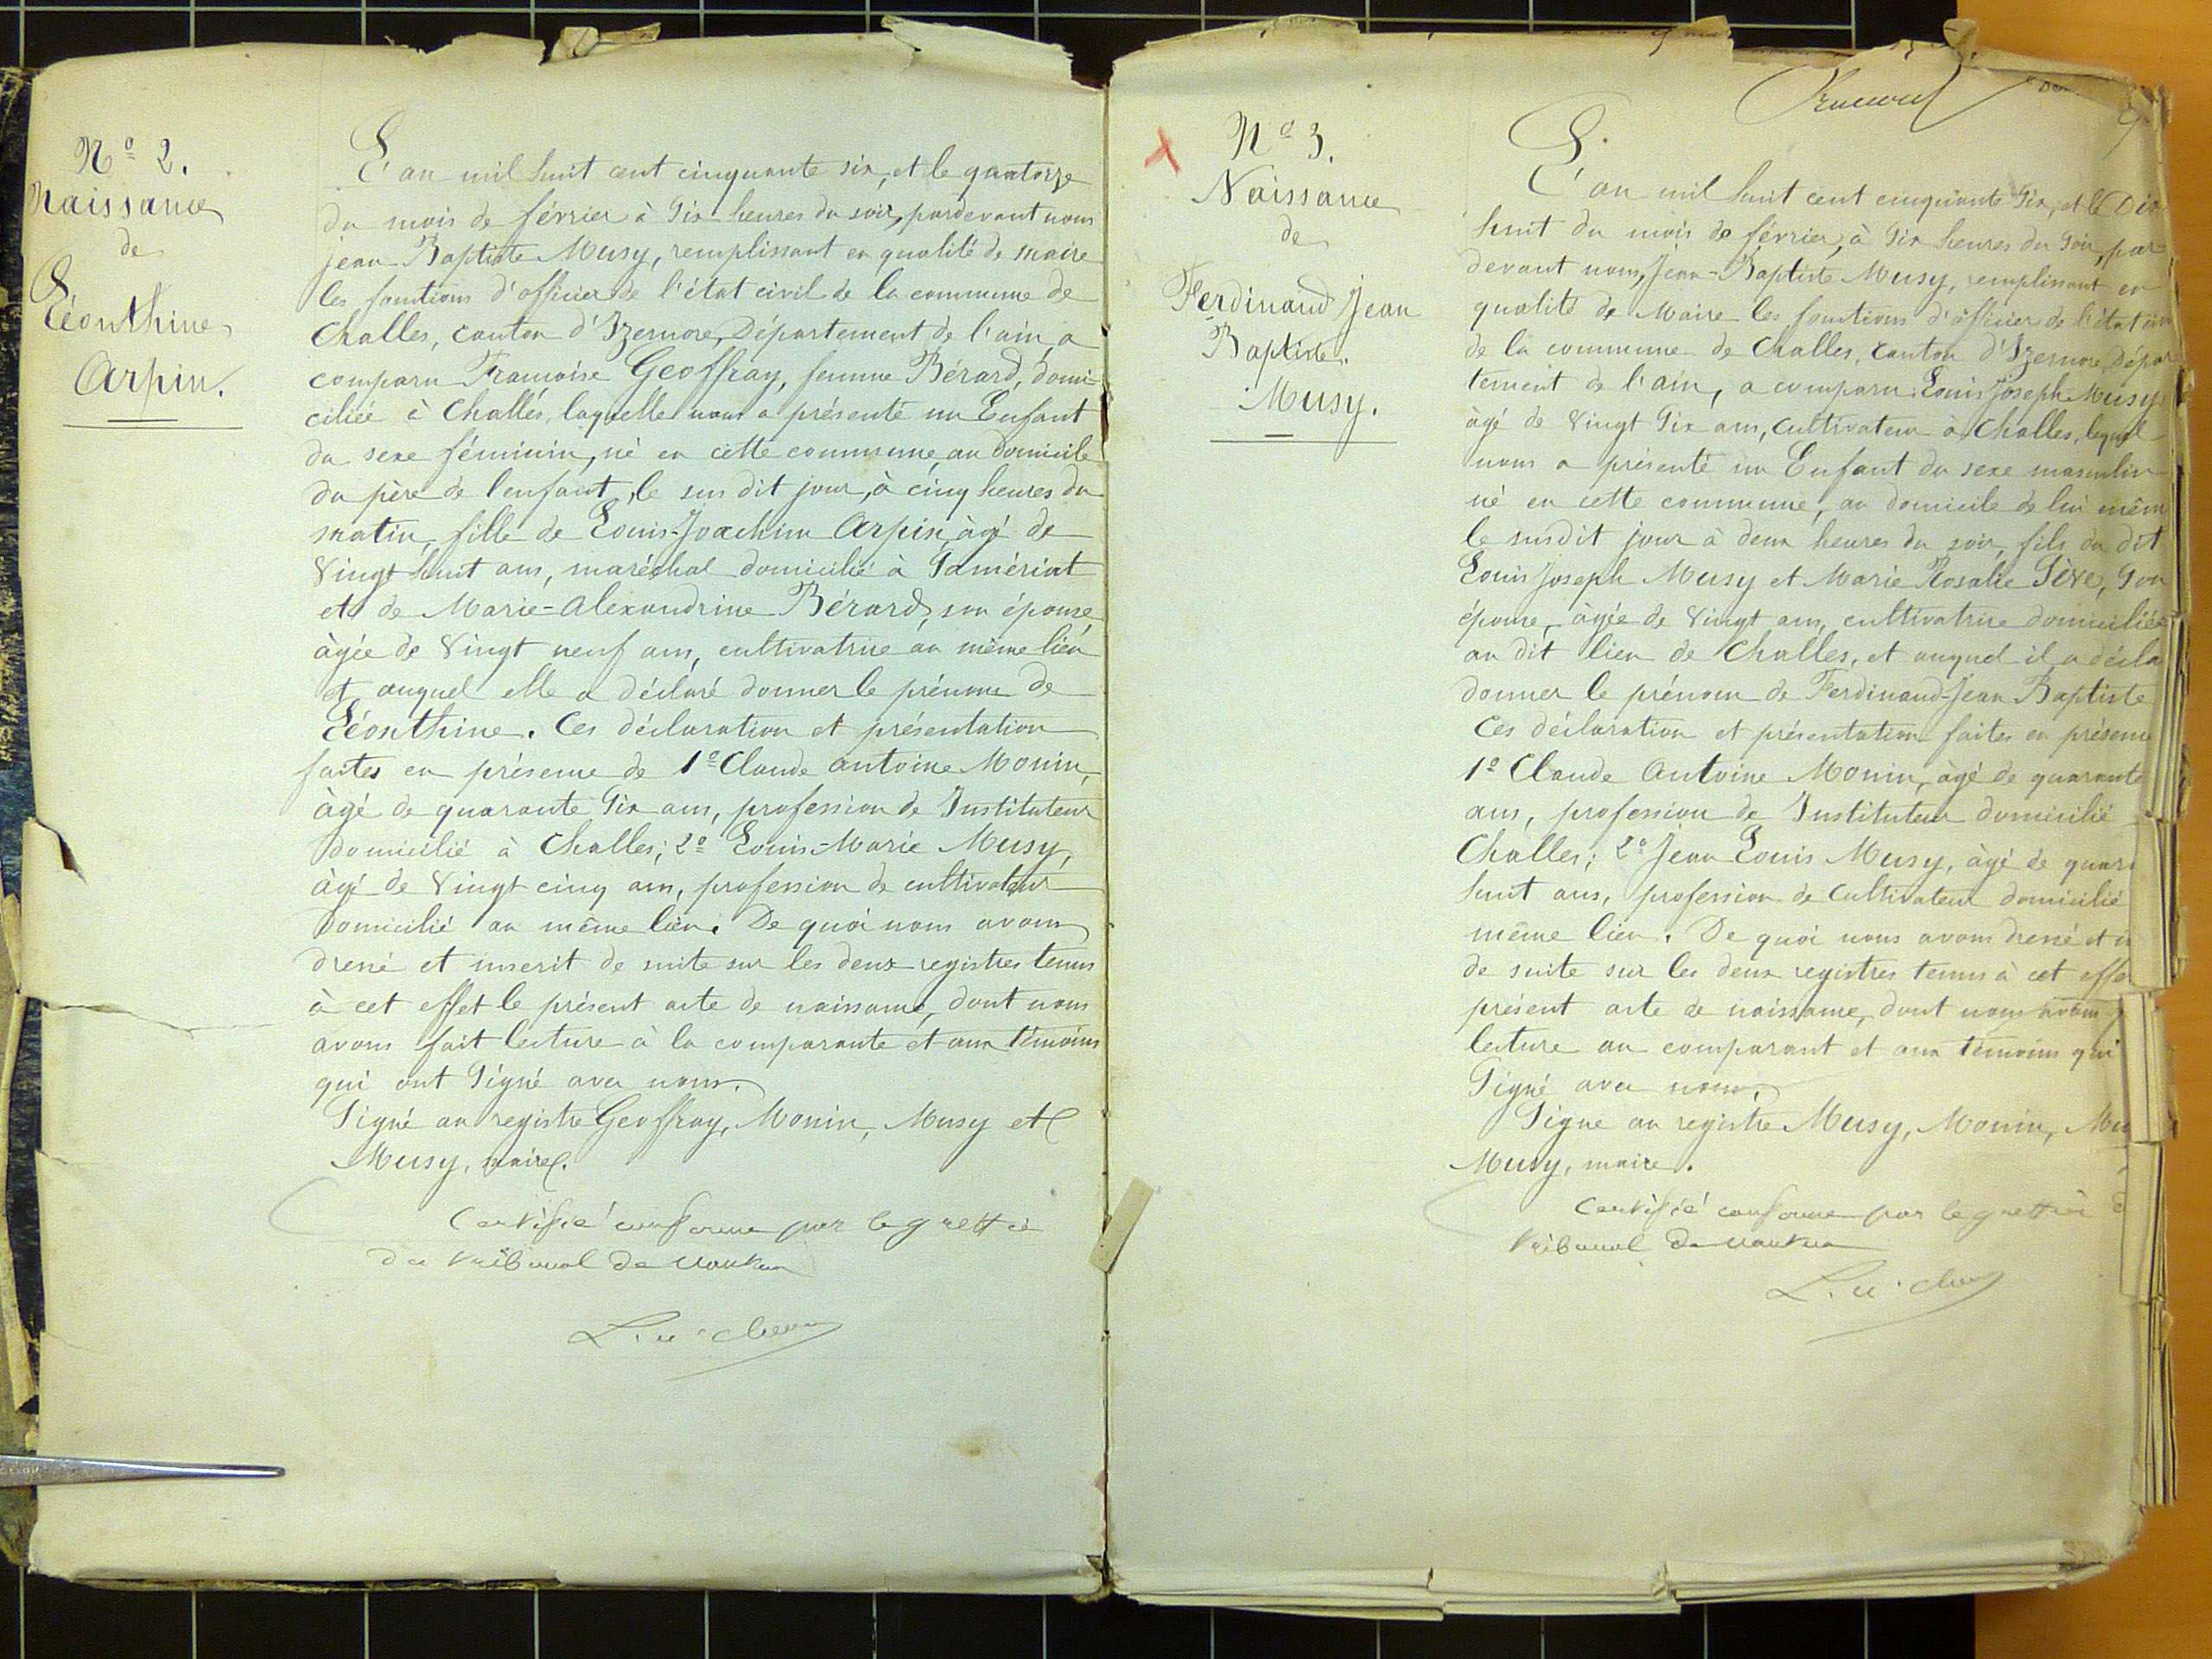 Nº 2.
Naissance
de
Léonthine
Arpin.
L'an mil huit cent cinquante six, et le quatorze
du mois de février à six heures du soir, pardevant nous
jean Baptiste Musy, remplissant en qualité de maire
les fonctions d'officier de l'état civil de la commune de
Challes, canton d'Izernore, Département de l'ain, a
comparu Françoise Geoffray, femme Bérard, domi-
ciliée à Challes, laquelle nous a présenté un Enfant
du sexe féminin, né en cette commune, au domicile
du père de l'enfant, le sus dit jour, à cinq heures du
matin, fille de Louis-Joachim Arpin, âgé de
Vingt huit ans, maréchal domicilié à Samériat
et de Marie-Alexandrine Bérard, son épouse,
âgée de Vingt neuf ans, cultivatrice au même lieu
et auquel elle a déclaré donner le prénom de
Léonthine. Ces déclaration et présentation
faites en présence de 1º Claude antoine Monin,
âgé de quarante six ans, profession de Instituteur
domicilié à Challes; 2º Louis-Marie Musy,
âgé de Vingt cinq ans, profession de cultivateur
domicilié au même lieu. De quoi nous avons
dressé et inscrit de suite sur les deux registres tenus
à cet effet le présent acte de naissance, dont nous
avons fait lecture à la comparante et aux témoins
qui ont signé avec nous.
Signé au registre Geoffray, Monin, Musy et
Musy, maire.
Certifié conforme par le greffier
du tribunal de Nantua
Nº 3.
Naissance
de
Ferdinand Jean
Baptiste.
Musy.
L'an mil huit cent cinquante six, et le Dix
huit du mois de février, à six heures du soir, par-
devant nous, Jean-Baptiste Musy, remplissant en
qualité de Maire les fonctions d'officier de l'état civ
de la commune de Challes, canton d'Izernore, Dépar
tement de l'ain, a comparu Louis Joseph Musy
âgé de Vingt six ans, cultivateur à Challes, lequel
nous a présenté un Enfant du sexe masculin
né en cette commune, au domicile de lui même
le susdit jour à deux heures du soir, fils du dit
Louis Joseph Musy et Marie Rosalie Sève, son
épouse, âgée de Vingt ans, cultivatrice domiciliée
au dit lieu de Challes, et auquel il a décla
donner le prénom de Ferdinand-Jean Baptiste
Ces déclaration et présentation faites en présence
1º Claude Antoine Monin, âgé de quarante
ans, profession de Instituteur domicilié
Challes; 2º Jean Louis Musy, âgé de quara
huit ans, profession de Cultivateur domicilié
même lieu. De quoi nous avons dressé et in
de suite sur les deux registres tenus à cet effe
présent acte de naissance, dont nous avons
lecture au comparant et aux témoins qui
signé avec nous.
Signé au registre Musy, Monin, Mu
Musy, maire.
Certifié conforme par le greffier d
tribunal de Nantua